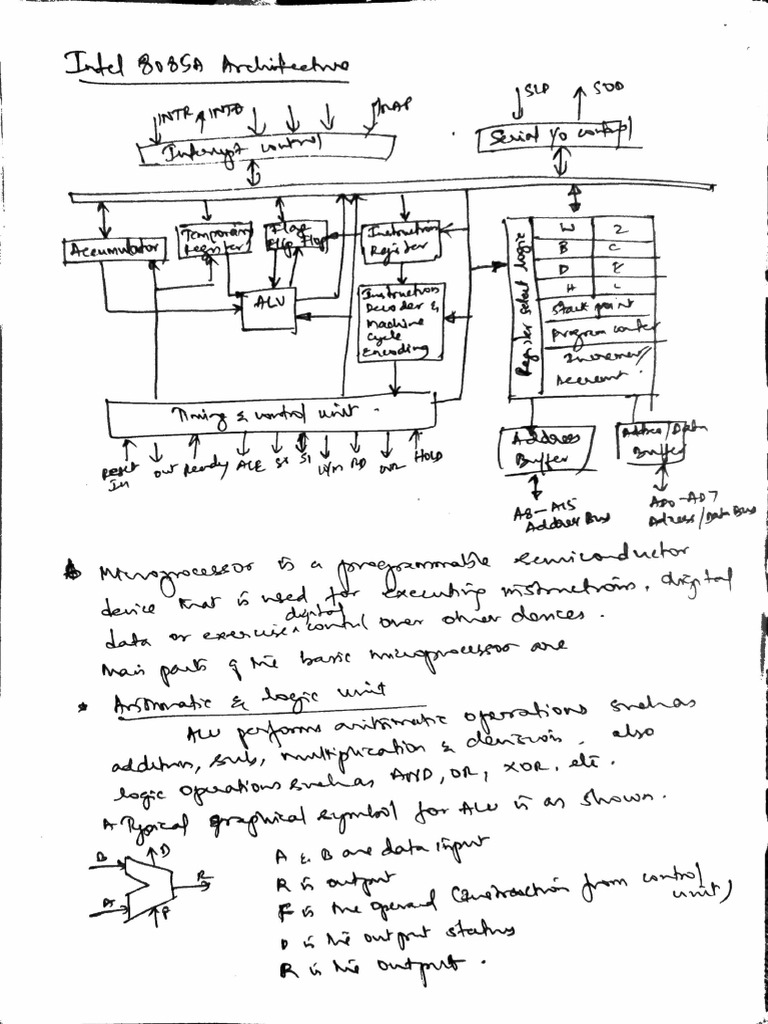 Intel 8085A Architecture
INTR INTA TRAP
SID SOD
Interrupt control
Serial I/O control
Accumulator
Temporary Register
Flag Flip Flop
Instruction Register
ALU
Instruction Decoder & Machine Cycle Encoding
Register select logic
W Z
B C
D E
H L
Stack point
Program counter
Increment/
Decrement
Timing & control unit
Reset In Out Ready ALE S0 S1 IO/M RD WR HOLD
Address Buffer
Address/Data Buffer
A8-A15
Address Bus
AD0-AD7
Adress/Data Bus
Microprocessor is a programmable semiconductor
device that is used for executing instructions, digital
data or exercise digital control over other devices.
Main parts of the basic microprocessor are
* Arithmatic & logic unit
ALU performs arithmatic operations such as
addition, sub, multiplication & devision, also
logic operations such as AND, OR, XOR, etc.
A Typical graphical symbol for ALU is as shown.
B D
R
A F
A & B are data input
R is output
F is the operand (instruction from control unit)
D is the output status
R is the output.